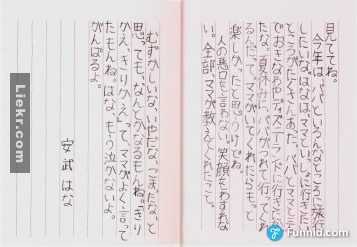 見ててね。
今年は、パパといろんなところに旅行
したいな。はなはママといっしょに行きたい
ところがたくさんあった。パパとママと
でおきなわやディズニーランドに行きたかっ
たな。夏休みにパパがつれて行ってくれ
るんだって。ママがいてくれたらもっと
楽しかったと思うけどね。
人の悪口を言わない、笑顔をわすれな
い。全部、ママが教えてくれたこと。
むずかしいな、いやだな、こまったな、と
思っても、なんとかなるもんね。『きり
かえ、きりかえ』って、ママがよく言って
たもんね。はな、もう泣かないよ。
がんばるよ。
安武はな
Liekr.com
funny.pho.to